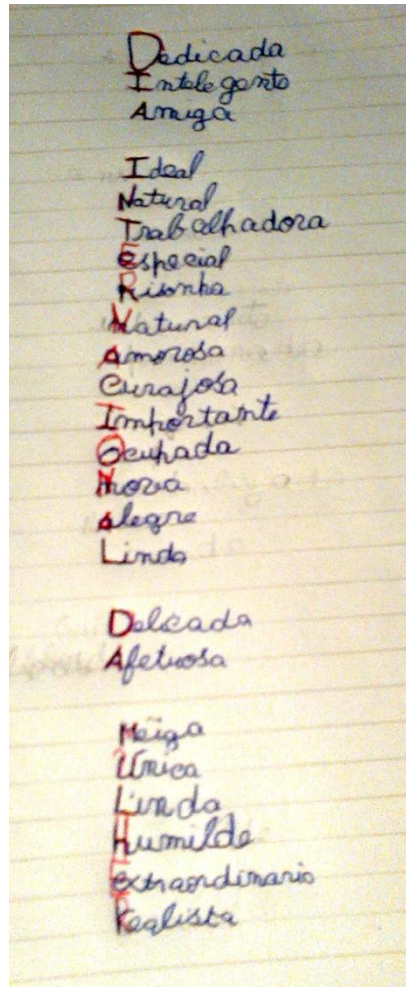 Dedicada
Intelegente
Amiga
Ideal
Natural
Trabalhadora
Especial
Risonha
Natural
Amorosa
Curajosa
Importante
Ocupada
Nova
Alegre
Linda
Delicada
Afetuosa
Meiga
Única
Linda
Humilde
Extraordinario
Realista